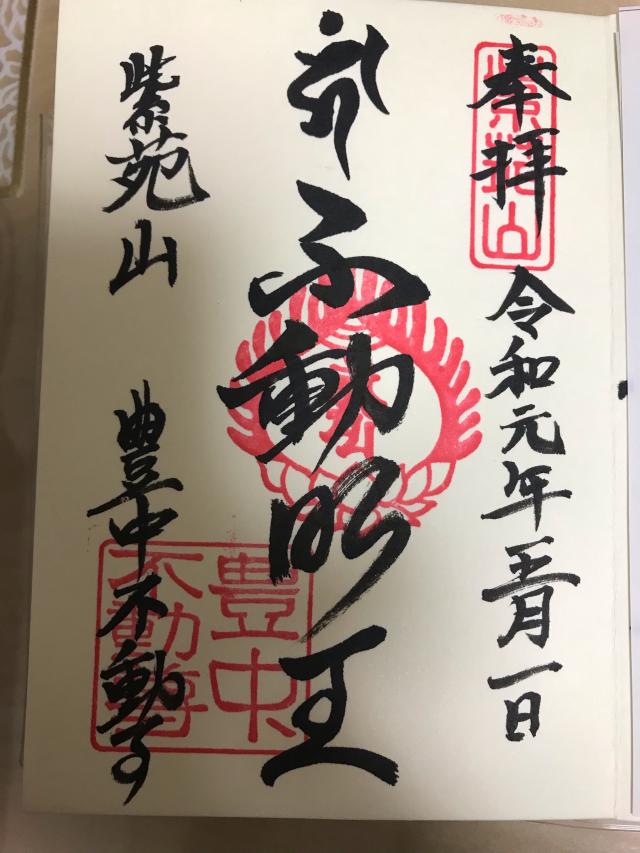 奉拝
令和元年五月一日
不動明王
紫苑山
豊中不動寺
紫苑山
豊中
不動尊